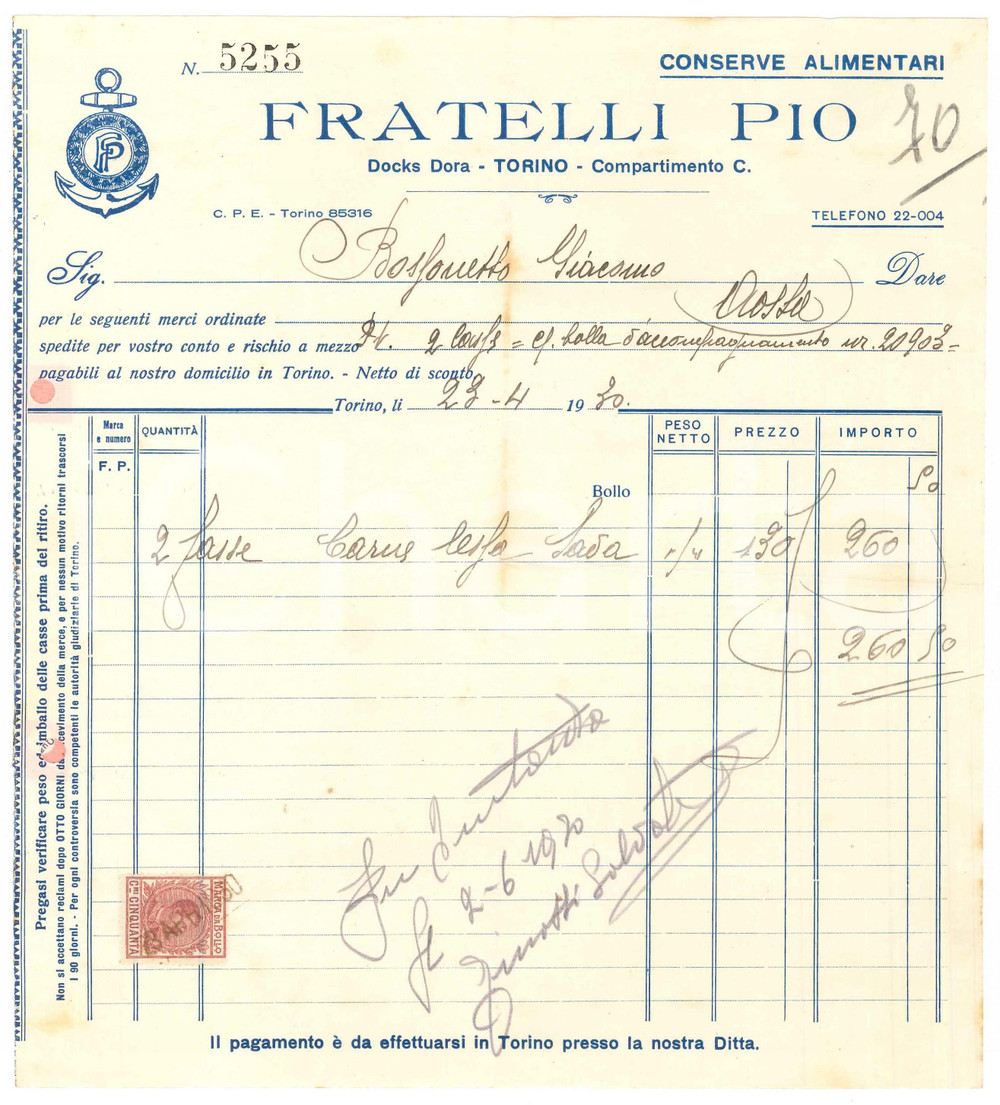 N. 5255
CONSERVE ALIMENTARI
FP
FRATELLI PIO
70
Docks Dora - TORINO - Compartimento C.
C. P. E. - Torino 85316
TELEFONO 22-004
Sig. Giacomo Dare
Aosta
per le seguenti merci ordinate
spedite per vostro conto e rischio a mezzo 2 = bolla d'accompagnamento nr. 20903 -
pagabili al nostro domicilio in Torino. - Netto di sconto
Torino, li 23-4 1930.
Marca e numero QUANTITÀ PESO NETTO PREZZO IMPORTO
F. P.
Bollo 50
2 Casse Carne lessa 130 260
260 50
2-6 1930
Pregasi verificare peso ed imballo delle casse prima del ritiro.
Non si accettano reclami dopo OTTO GIORNI dal ricevimento della merce, e per nessun motivo ritorni trascorsi
I 90 giorni. - Per ogni controversia sono competenti le autorità giudiziarie di Torino.
MARCA DA BOLLO
CMI CINQUANTA
Il pagamento è da effettuarsi in Torino presso la nostra Ditta.